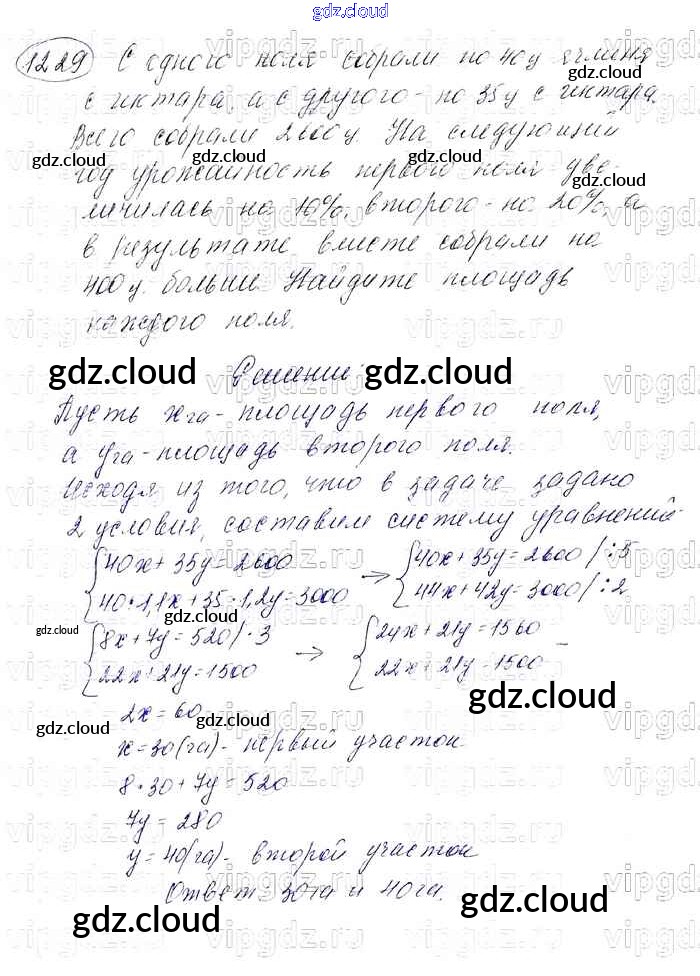 gdz.cloud
1229 С одного поля собрали по 40 ц ячменя
с гектара, а с другого - по 35 ц с гектара.
Всего собрали 2600 ц. На следующий
год урожайность первого поля уве-
личилась на 10%, второго - на 20%, а
в результате вместе собрали на
400 ц. больше. Найдите площадь
каждого поля.
Решение:
Пусть x га - площадь первого поля,
а y га - площадь второго поля.
Исходя из того, что в задаче задано
2 условия, составим систему уравнений
{40x + 35y = 2600 → {40x + 35y = 2600 /:5
{40·1,1x + 35·1,2y = 3000 {44x + 42y = 3000 /:2
{8x + 7y = 520 /·3 → {24x + 21y = 1560
{22x + 21y = 1500 {22x + 21y = 1500 -
2x = 60
x = 30 (га) - первый участок
8·30 + 7y = 520
7y = 280
y = 40 (га) - второй участок
Ответ: 30 га и 40 га.
gdz.cloud gdz.cloud